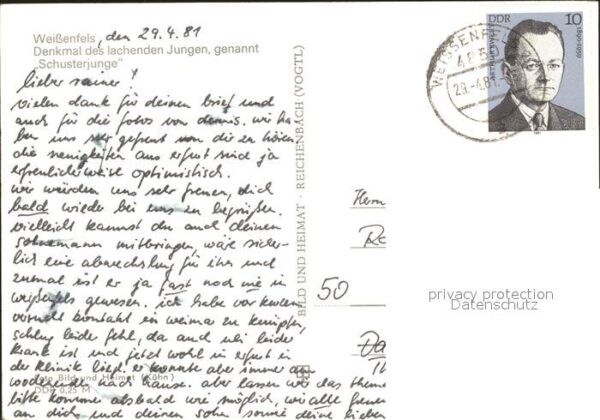 Weißenfels, den 29.4.81
Denkmal des lachenden Jungen, genannt
„Schusterjunge"
lieber rainer!
vielen dank für deinen brief und
auch für die fotos von dennis. wir ha-
ben uns sehr gefreut von dir zu hören
die neuigkeiten aus erfurt sind ja
erfreulicherweise optimistisch.
wir würden uns sehr freuen, dich
bald wieder bei uns zu begrüßen.
vielleicht kannst du auch deinen
mitbringen, wäre sicher-
lich eine abwechslung für ihn und
zumal ist er ja fast noch nie in
weißenfels gewesen. ich habe vor kurzem
versucht kontakt in weimar zu knüpfen,
schlug leider fehl, da auch uli leider
krank ist und jetzt wohl in erfurt in
der klinik liegt. er konnte aber immer am
wochenende nach hause. aber lassen wir das thema
bitte komme alsbald wie möglich, wir alle freuen
an dich und deinen sohn sowie deine lieben
Foto Bild und Heimat (Kühn)
DDR 0,25 M
BILD UND HEIMAT · REICHENBACH (VOGTL)
WEISSENFELS
29.-4.81
DDR 10
ARTHUR EWERT
1890-1959
1981
Herrn
50
privacy protection
Datenschutz